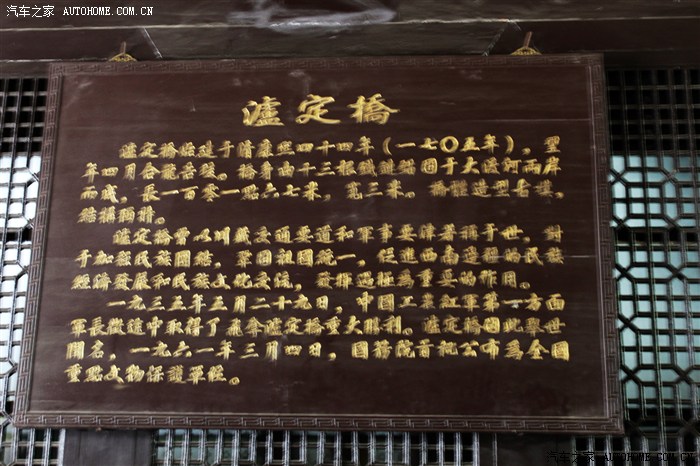 汽车之家 AUTOHOME.COM.CN
瀘定橋
瀘定橋始建于清康熙四十四年（一七〇五年），翌
年四月合龍告竣。橋身由十三根鐵鏈錨固于大渡河兩岸
而成，長一百零一點六七米，寬三米。橋體造型古樸，
結構獨特。
瀘定橋曾以川藏交通要道和軍事要津著稱于世，對
于加強民族團結，鞏固祖國統一，促進西南邊疆的民族
經濟發展和民族文化交流，發揮過極為重要的作用。
一九三五年五月二十九日，中國工農紅軍第一方面
軍長徵途中取得了飛奪瀘定橋重大勝利。瀘定橋因此舉世
聞名，一九六一年三月四日，國務院首批公布為全國
重點文物保護單位。
汽车之家 AUTOHOME.COM.CN